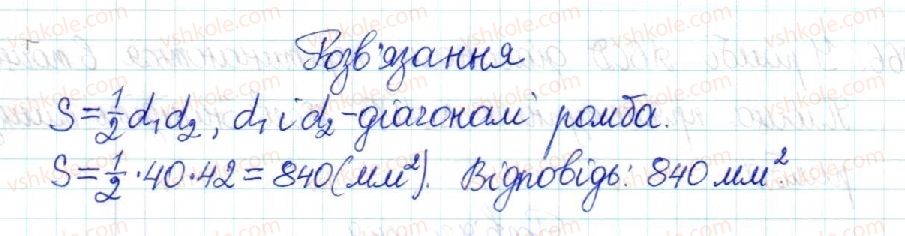 Розв'язання
S = 1/2 d₁d₂, d₁ і d₂ - діагоналі ромба.
S = 1/2 · 40 · 42 = 840 (мм²). Відповідь: 840 мм².